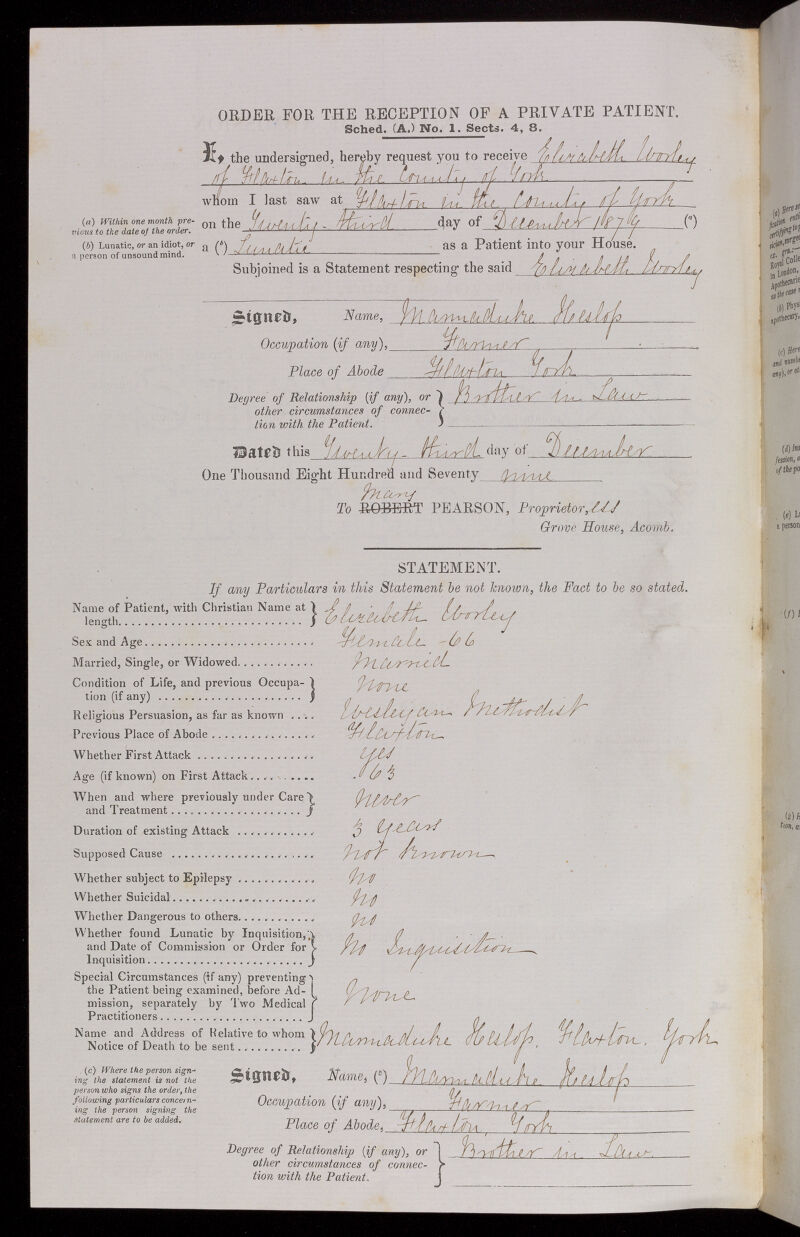 ORDER FOR THE RECEPTION OF A PRIVATE PATIENT.
Sched. (A.) No. 1. Sects. 4, 8.
I, the undersigned, hereby request you to receive Elizabeth Worley
of Flaxton in the County of York
whom I last saw at Flaxton in the County of York
(a) Within one month previous to the date of the order.
on the Twenty-third day of December 1879 (a)
(b) Lunatic, or an idiot, or a person of unsound mind.
a (b) Lunatic as a Patient into your House.
Subjoined is a Statement respecting the said Elizabeth Worley
Signed, Name, Marmaduke Heslop
Occupation (if any), Farmer
Place of Abode Flaxton York
Degree of Relationship (if any), or Brother in Law
other circumstances of connec-
tion with the Patient.
Dated this Twenty-third day of December
One Thousand Eight Hundred and Seventy nine
Mary
To ROBERT PEARSON, Proprietor,
Grove House, Acomb.
STATEMENT.
If any Particulars in this Statement be not known, the Fact to be so stated.
Name of Patient, with Christian Name at
length Elizabeth Worley
Sex and Age Female - 66
Married, Single, or Widowed Married
Condition of Life, and previous Occupa-
tion (if any) None
Religious Persuasion, as far as known Wesleyan Methodist
Previous Place of Abode Flaxton
Whether First Attack yes
Age (if known) on First Attack 63
When and where previously under Care
and Treatment never
Duration of existing Attack 3 years
Supposed Cause not known
Whether subject to Epilepsy No
Whether Suicidal No
Whether Dangerous to others no
Whether found Lunatic by Inquisition,
and Date of Commission or Order for
Inquisition No Inquisition
Special Circumstances (if any) preventing
the Patient being examined, before Ad-
mission, separately by Two Medical
Practitioners None
Name and Address of Relative to whom
Notice of Death to be sent Marmaduke Heslop. Flaxton. York
(c) Where the person sign-
ing the statement is not the
person who signs the order, the
following particulars concern-
ing the person signing the
statement are to be added.
Signed, Name, (c) Marmaduke Heslop
Occupation (if any), Farmer
Place of Abode, Flaxton, York
Degree of Relationship (if any), or Brother in Law
other circumstances of connec-
tion with the Patient.